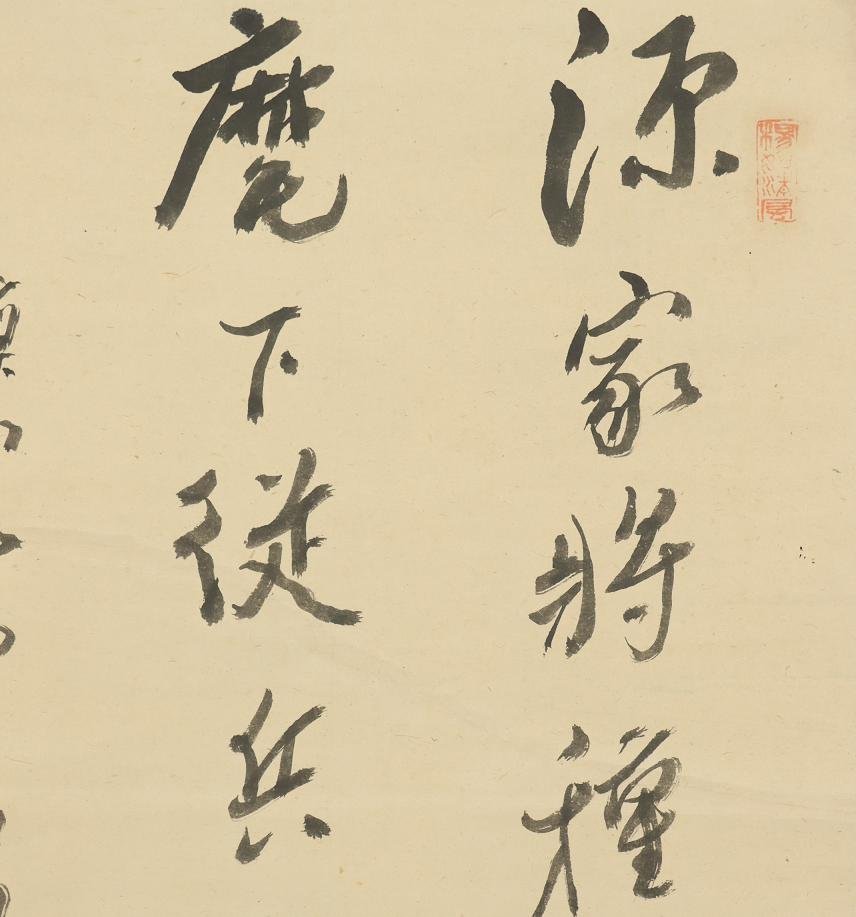 源家將種
麾下從兵